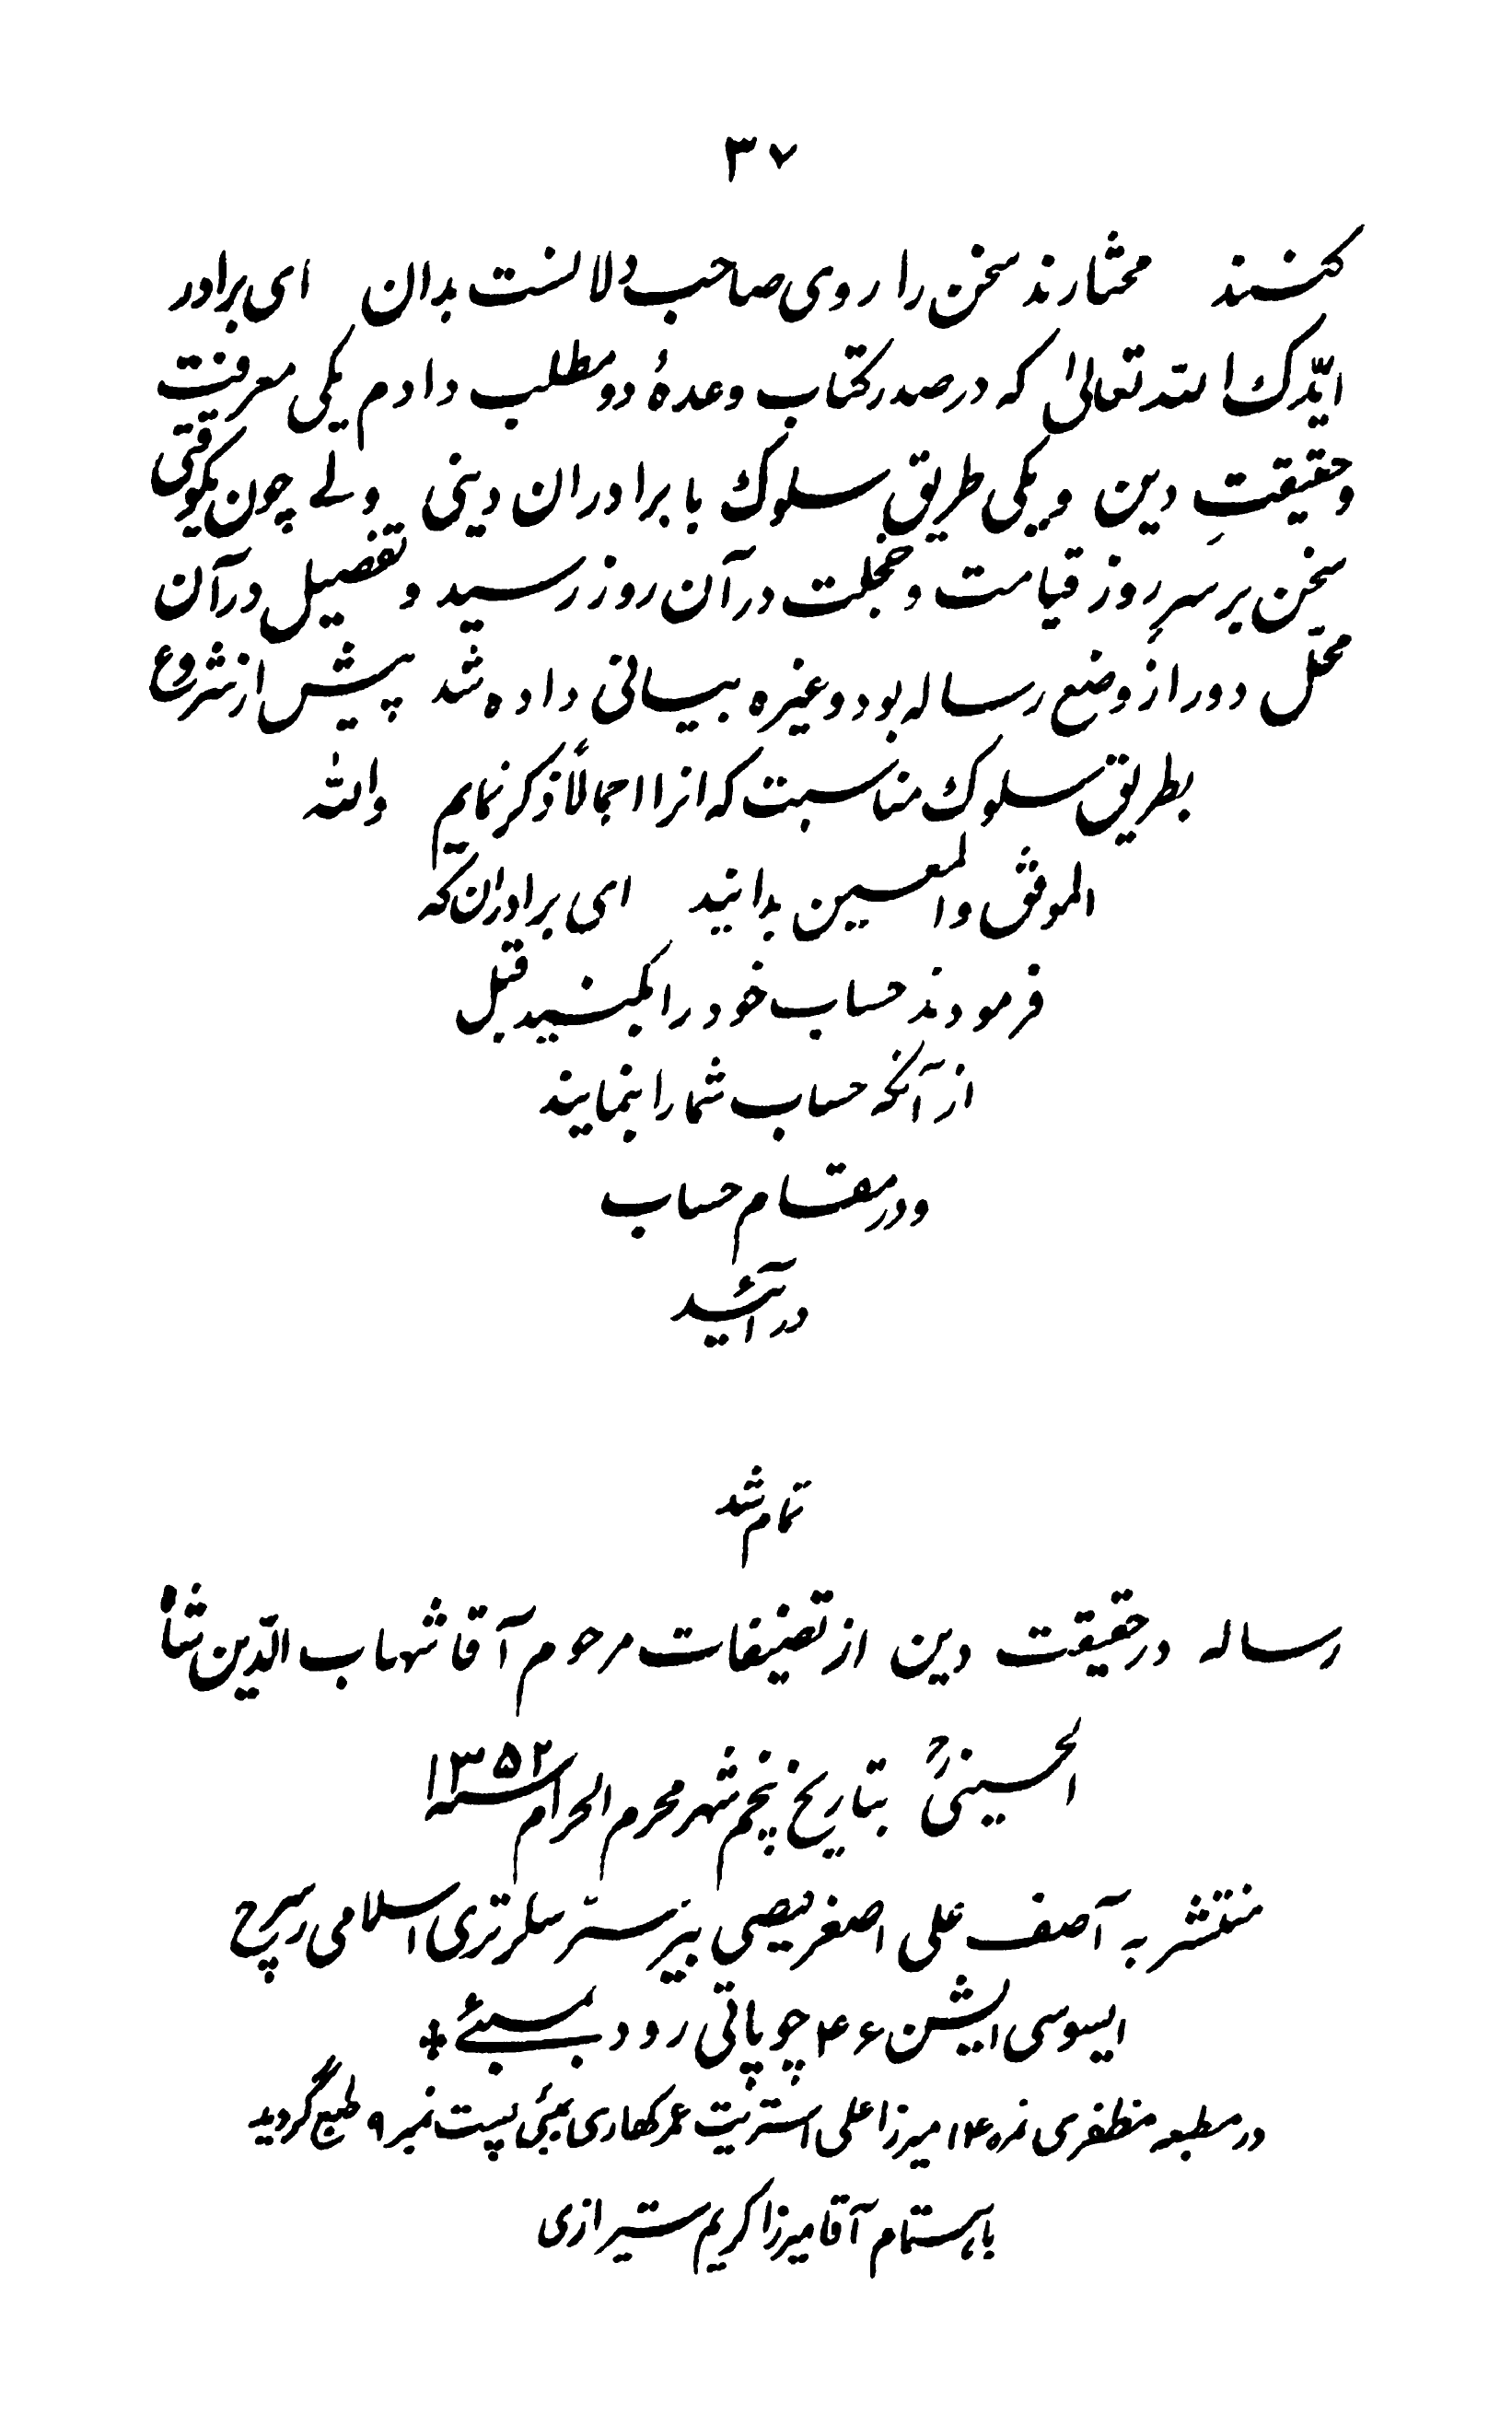 ۳۷
کنند مختارند سخن را روی صاحب دلالست بدان ای برادر
ایّدک الله تعالیٰ که در صدر کتاب وعدهٔ دو مطلب دادم یکی معرفت
وحقیقتِ دین ویکی طریق سلوک با برادران دینی ولے چون یکوقتی
سخن بر سرِ روز قیامت وخجلت در آن روز رسید وتفصیل در آن
محل دور از وضع رساله بود وغیره بیانی داده شد پیش از شروع
بطریق سلوک مناسبت که انرا اجمالاً ذکر نمایم والله
الموفق والمعین بدانید ای برادران که
فرمودند حساب خود را بکنید قبل
از آنکه حساب شما را بنمایند
ودر مقام حساب
در آئید
تمام شد
رساله در حقیقت دین از تصنیفات مرحوم آقا شهاب الدّین شاه
الحسینیؒ بتاریخ پنجم شهر محرم الحرام سنه ۱۳۵۲
منتشر به آصف علی اصغر فیضی بیرسٹر سکرتری اسلامی ریسرچ
ایسوسی ایشن ۴۶ چوپاتی رود بمبئے *
در مطبعه مظفری نمره ۱۴ میرزا علی استریت عمرکهاری بمبئی پست نمبر ۹ طبع گردید
باهتمام آقا میرزا کریم شیرازی